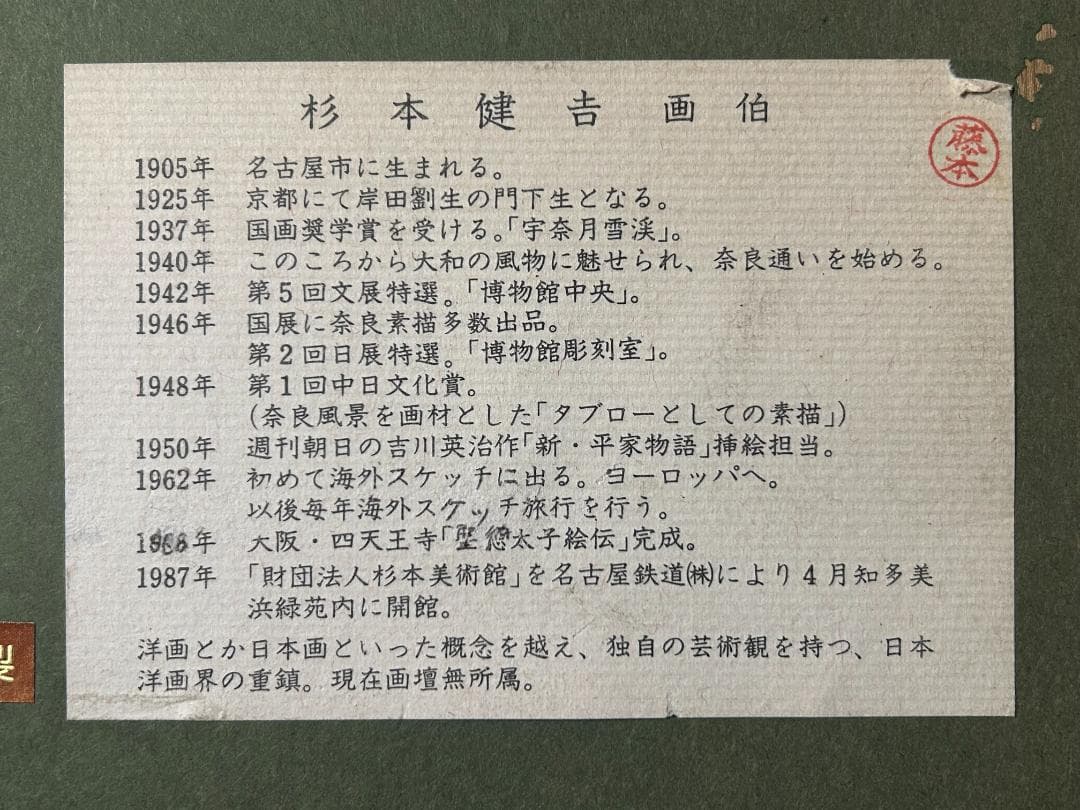 杉本健吉画伯
藤本
1905年 名古屋市に生まれる。
1925年 京都にて岸田劉生の門下生となる。
1937年 国画奨学賞を受ける。「宇奈月雪渓」。
1940年 このころから大和の風物に魅せられ、奈良通いを始める。
1942年 第5回文展特選。「博物館中央」。
1946年 国展に奈良素描多数出品。
第2回日展特選。「博物館彫刻室」。
1948年 第1回中日文化賞。
(奈良風景を画材とした「タブローとしての素描」)
1950年 週刊朝日の吉川英治作「新・平家物語」挿絵担当。
1962年 初めて海外スケッチに出る。ヨーロッパへ。
以後毎年海外スケッチ旅行を行う。
年 大阪・四天王寺「聖徳太子絵伝」完成。
1987年 「財団法人杉本美術館」を名古屋鉄道㈱により4月知多美
浜緑苑内に開館。
洋画とか日本画といった概念を越え、独自の芸術観を持つ、日本
洋画界の重鎮。現在画壇無所属。